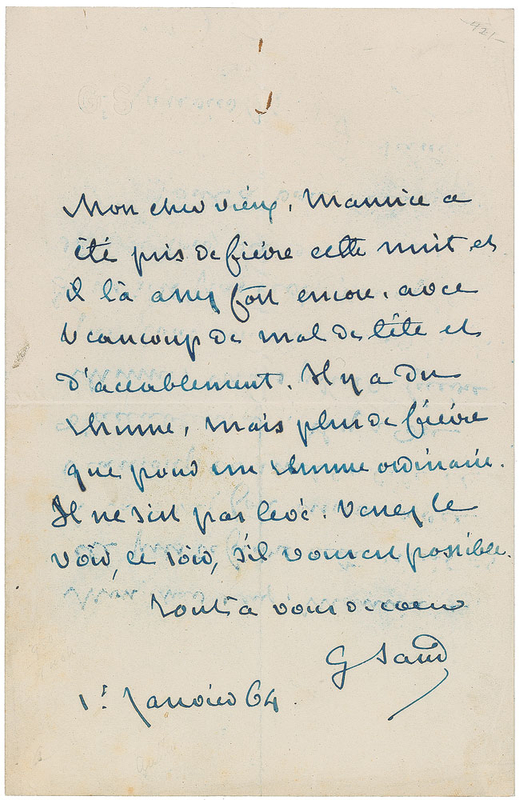 421-
Mon cher vieux, Maurice a
été pris de fièvre cette nuit et
il l'a assez fort encore. avec
beaucoup de mal de tête et
d'accablement. Il y a du
rhume, mais plus de fièvre
que pour un rhume ordinaire.
Il ne s'est pas levé. Venez le
voir, ce soir, s'il vous est possible.
Tout à vous de coeur
G Sand
1er Janvier 64.